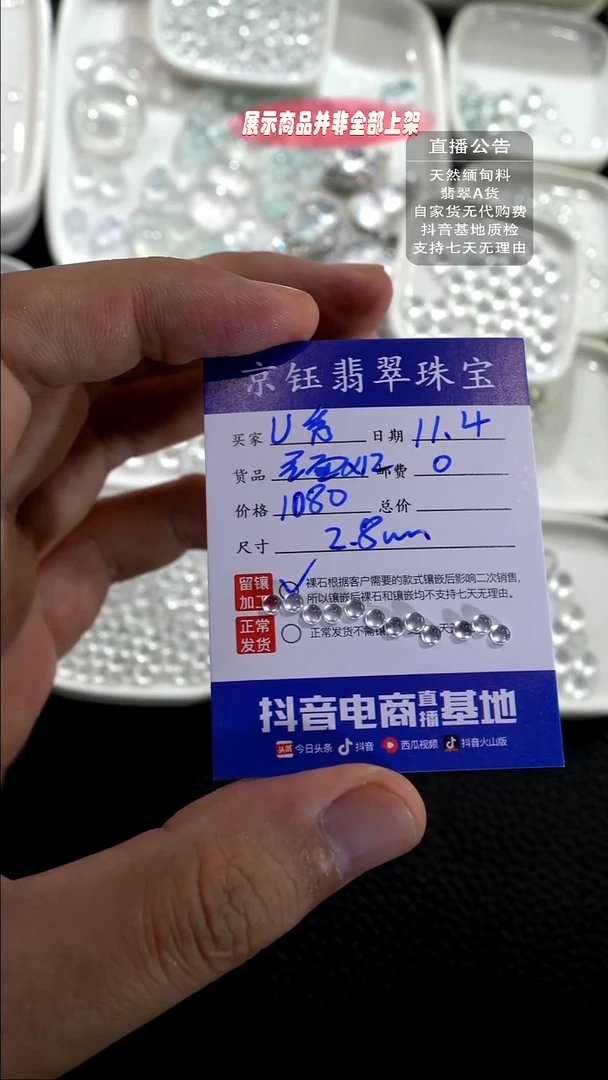 展示商品并非全部上架
直播公告
天然缅甸料
翡翠A货
自家货无代购费
抖音基地质检
支持七天无理由
京钰翡翠珠宝
买家 U 日期 11.4
货品 蛋面x12 邮费 0
价格 1080 总价
尺寸 2.8mm
留镶 裸石根据客户需要的款式镶嵌后影响二次销售,
加工 所以镶嵌后裸石和镶嵌均不支持七天无理由。
正常
发货 正常发货不需镶
抖音电商直播基地
头条 今日头条 抖音 西瓜视频 抖音火山版